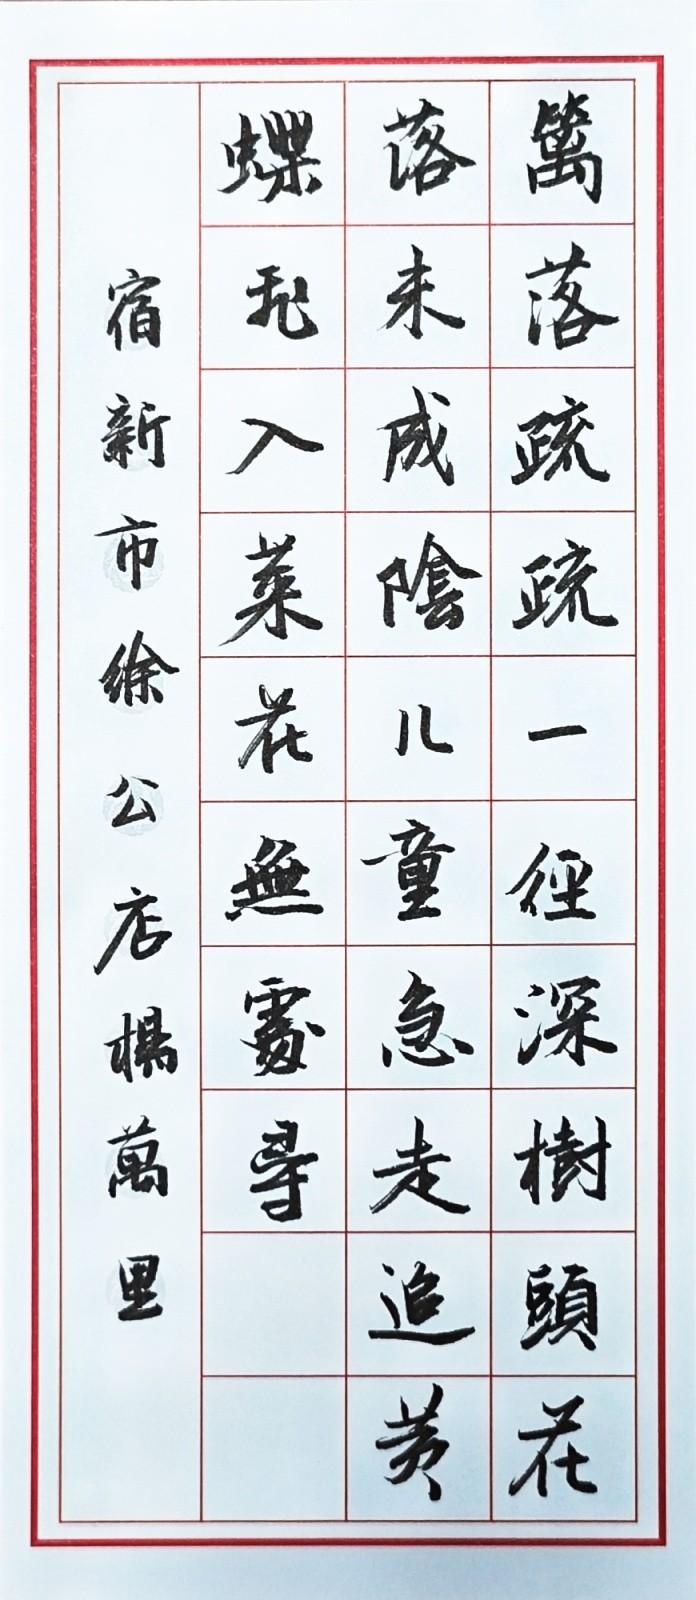 篱落疏疏一徑深樹頭花
落未成陰儿童急走追黄
蝶飛入菜花無處尋
宿新市徐公店楊萬里